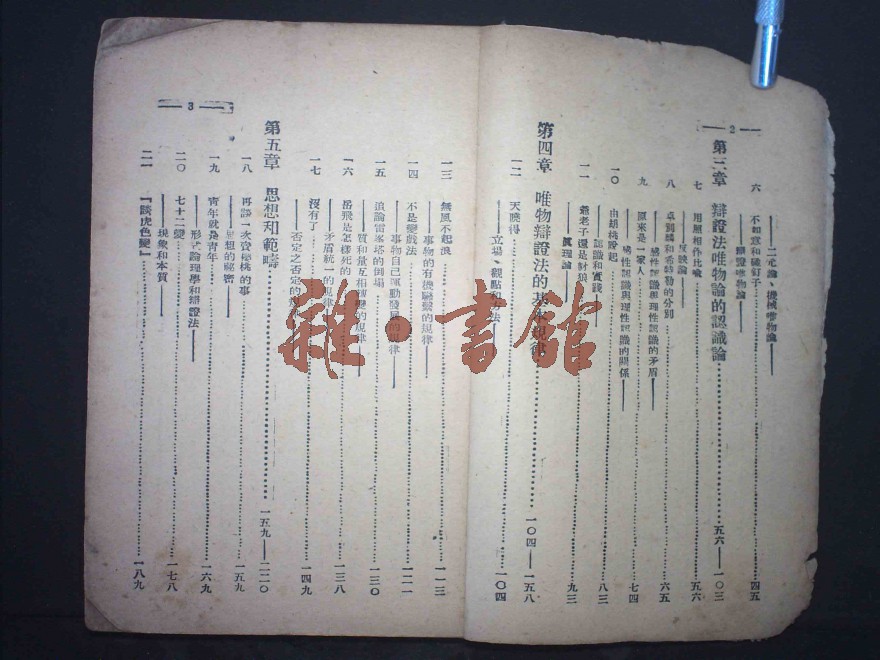 — 2 —
——二元論、機械唯物論——
六 不如意和碰釘子……四五
——辯證唯物論——
第三章 辯證法唯物論的認識論……五六——一〇三
七 用照相作比喻……五六
——反映論——
八 卓別麟和希特勒的分別……六五
——感性認識與理性認識的矛盾——
九 原來是一家人……七四
——感性認識與理性認識的關係——
一〇 由胡桃說起……八三
——認識和實踐——
一一 爺老子還是豺狼……九三
——真理論——
第四章 唯物辯證法的基本規律……一〇四——一五八
一二 天曉得……一〇四
——立場、觀點、方法——
一三 無風不起浪……一一三
——事物的有機聯繫的規律——
一四 不是變戲法……一二一
——事物自己運動發展的規律——
一五 追論雷峯塔的倒塌……一三〇
——質和量互相轉變的規律——
一六 岳飛是怎樣死的……一三八
——矛盾統一的規律——
一七 沒有了……一四九
——否定之否定的
第五章 思想和範疇……一五九——二二〇
一八 再談一次賣櫻桃的事……一五九
——思想的秘密——
一九 青年就是青年……一六九
——形式論理學和辯證法——
二〇 七十二變……一七八
——現象和本質——
二一 『談虎色變』……一八九
— 3 —
雜·書館